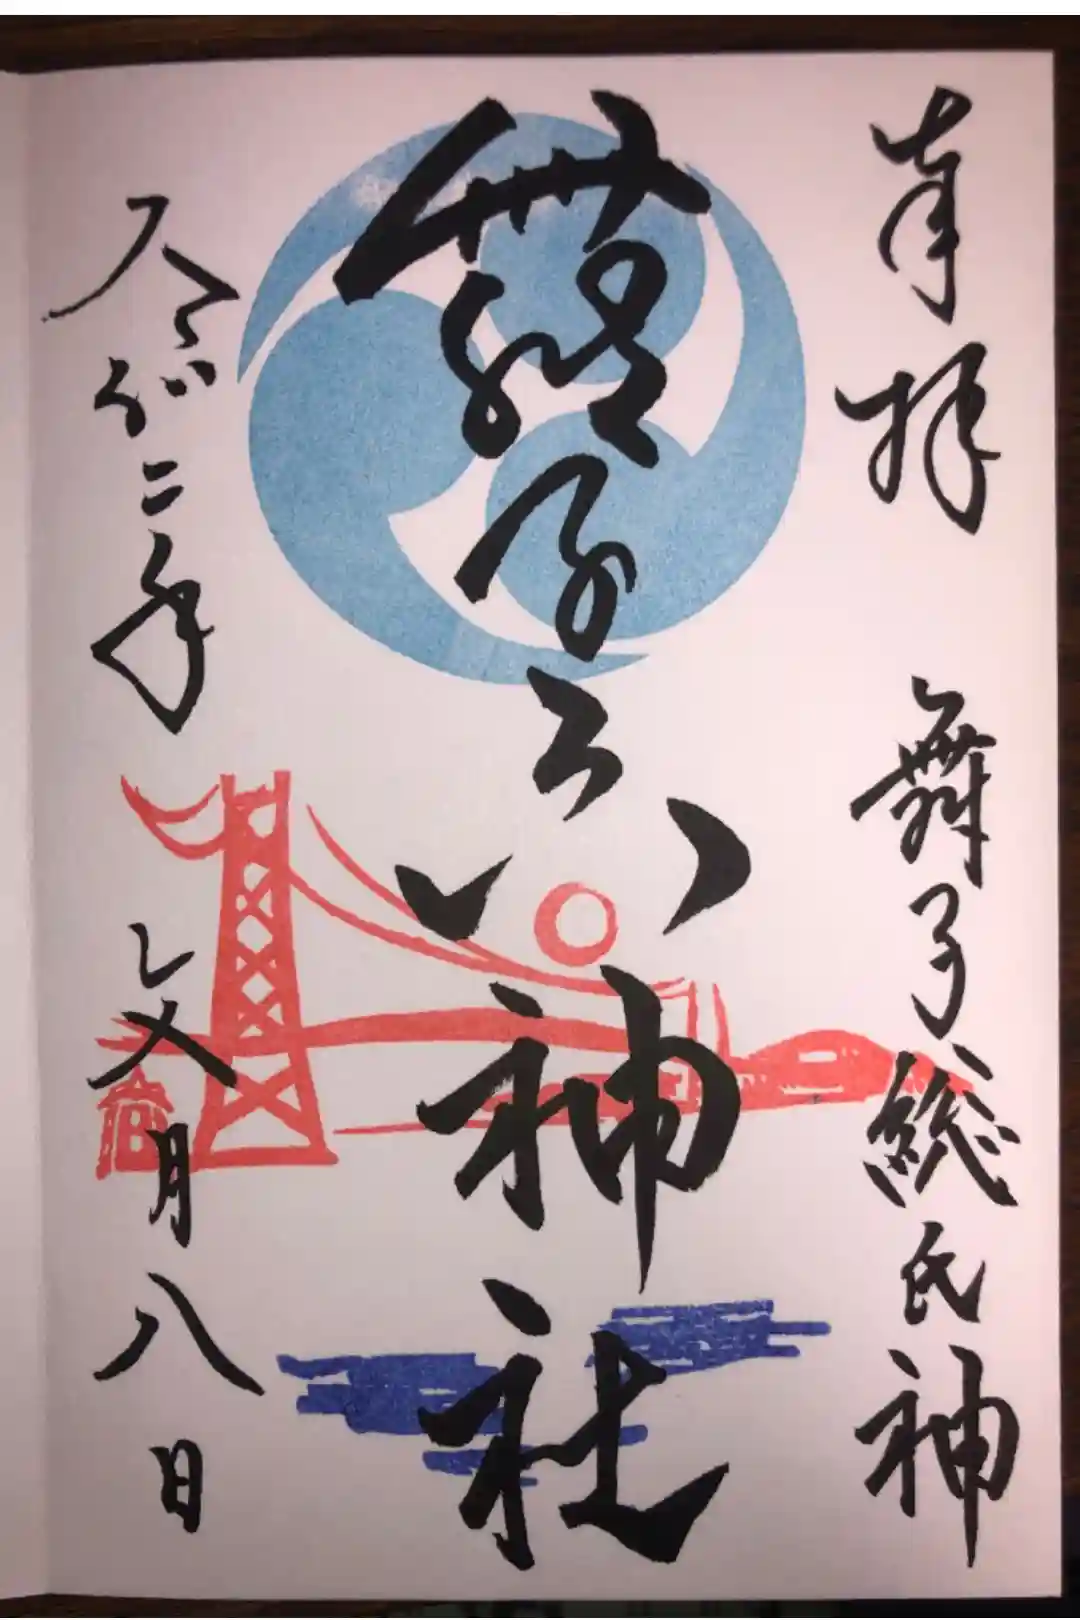 奉拝
舞子総氏神
舞子六神社
令和二年
七月八日